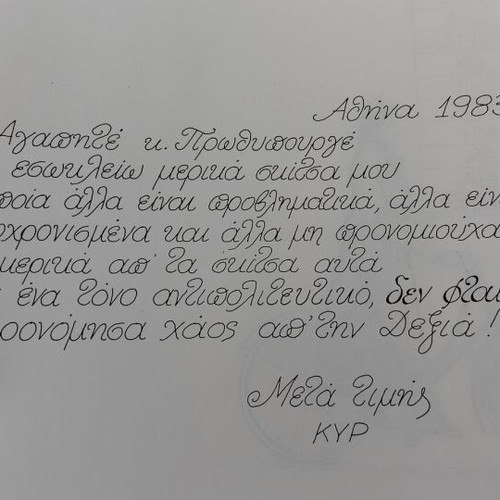 Αθήνα 1983
Αγαπητέ κ. Πρωθυπουργέ
εσωκλείω μερικά σκίτσα μου
ποία άλλα είναι προβληματικά, άλλα είν
οχρονισμένα και άλλα μη προνομιούχα
μερικά απ' τα σκίτσα αυτά
ένα τόνο αντιπολιτευτικό, δεν φταί
ρονόμησα χάος απ' την Δεξιά!
Μετά τιμής
ΚΥΡ